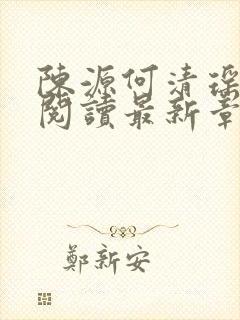 陳源何清瑤
閱讀最新章
鄭新安